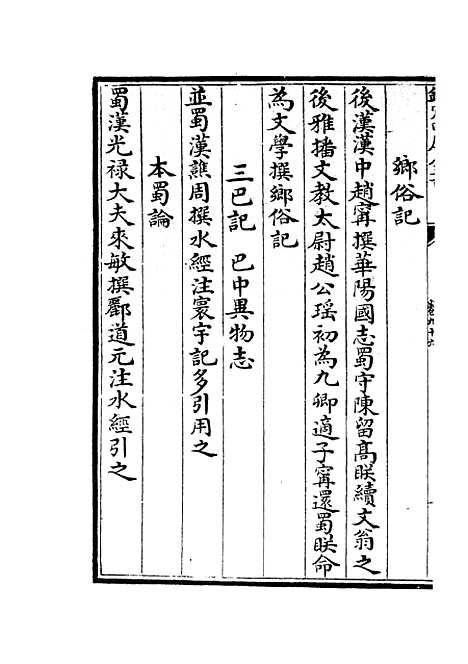 鄉俗記
後漢漢中趙寗撰華陽國志蜀守陳留髙眹續文翁之
後雅播文教太尉趙公瑶初為九卿適子寗還蜀眹命
為文學撰鄉俗記
三巴記 巴中異物志
並蜀漢譙周撰水經注寰宇記多引用之
本蜀論
蜀漢光禄大夫來敏撰酈道元注水經引之